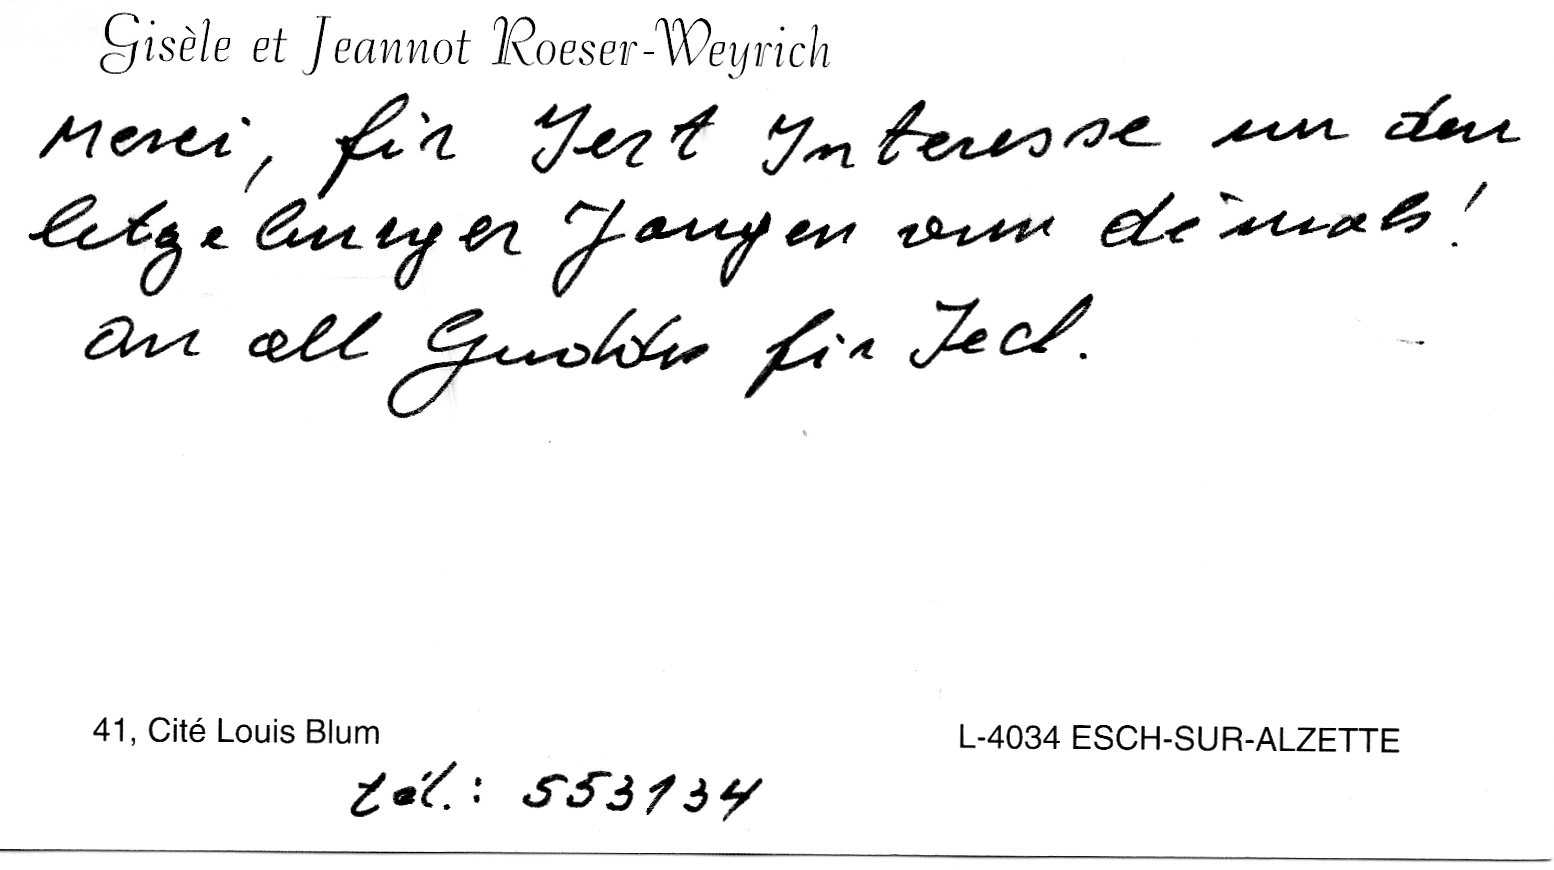 Gisèle et Jeannot Roeser-Weyrich
Merci, fir Iert Interesse un den
letzebuerger Jongen vun démols!
An all Guddes fir Iech.
41, Cité Louis Blum
L-4034 ESCH-SUR-ALZETTE
tél.: 553134